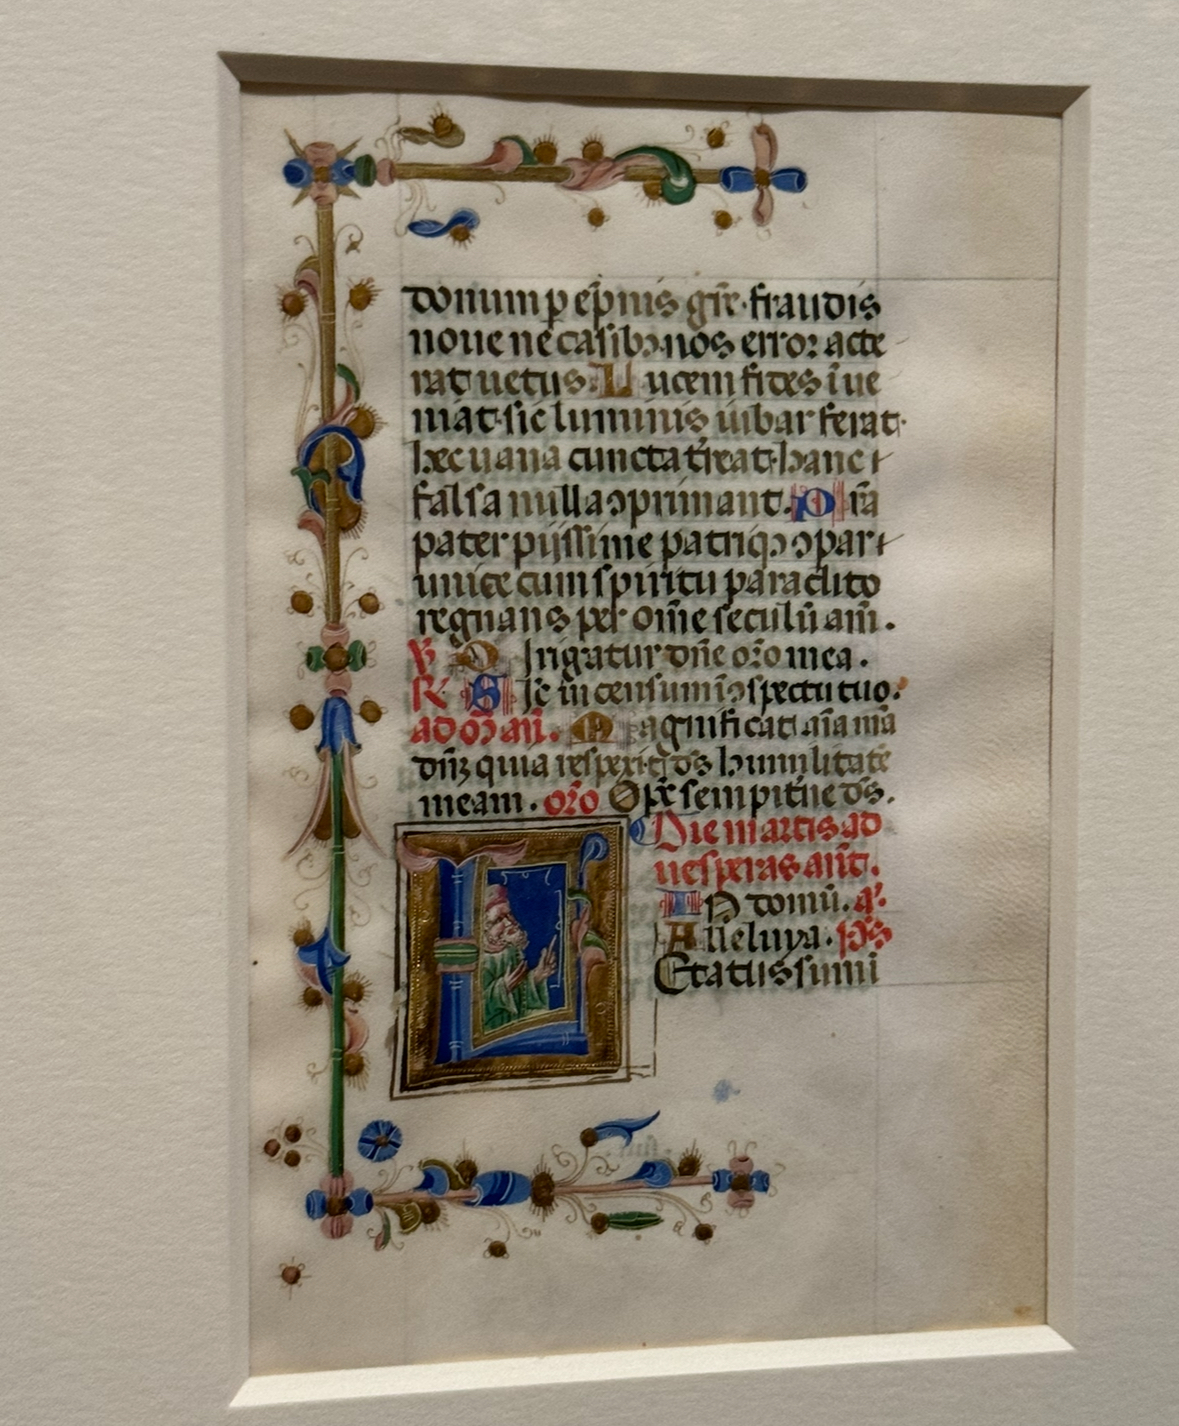 donum p ep̄nis gr̄e· fraudis
noue ne casibꝫ nos error acte
rat uetus· Lucem fides īue
niat· sic luminis iubar ferat·
hec uana cuncta t͛reat· hanc
falsa nulla ꝯprimant. P r̄a
pater pijssime patriqꝫ ꝯpar
unice cum spiritu paraclito
regnans per om̄e seculū am̄.
℣ Dirigatur dn̄e or̄o mea.
℟ Sic incensum ī ꝯspectu tuo.
ad
Magnificat aīa mā
dn̄ꝫ quia respexit ds̄ humilitatē
meam. or̄o Op̄e sempit͛ne ds̄.
Die martis ad
uesperas ant̄.
IN domū. a͛.
Alleluya. ps̄
Letatus sum ī